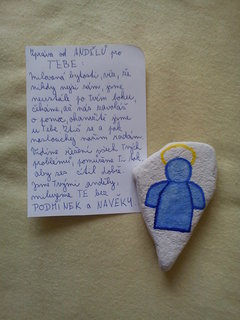 Zpráva od ANDĚLŮ pro
TEBE:
Milovaná bytosti, věz, že
nikdy nejsi sám, jsme
neustále po Tvém boku,
čekáme, až nás zavoláš
o pomoc, okamžitě jsme
u Tebe. Ztiš se a pak
naslouchej našim radám.
Vidíme řešení všech Tvých
problémů, pomůžeme Ti tak,
aby ses cítil dobře.
Jsme Tvými anděly,
milujeme TE bez
PODMÍNEK a NAVĚKY.